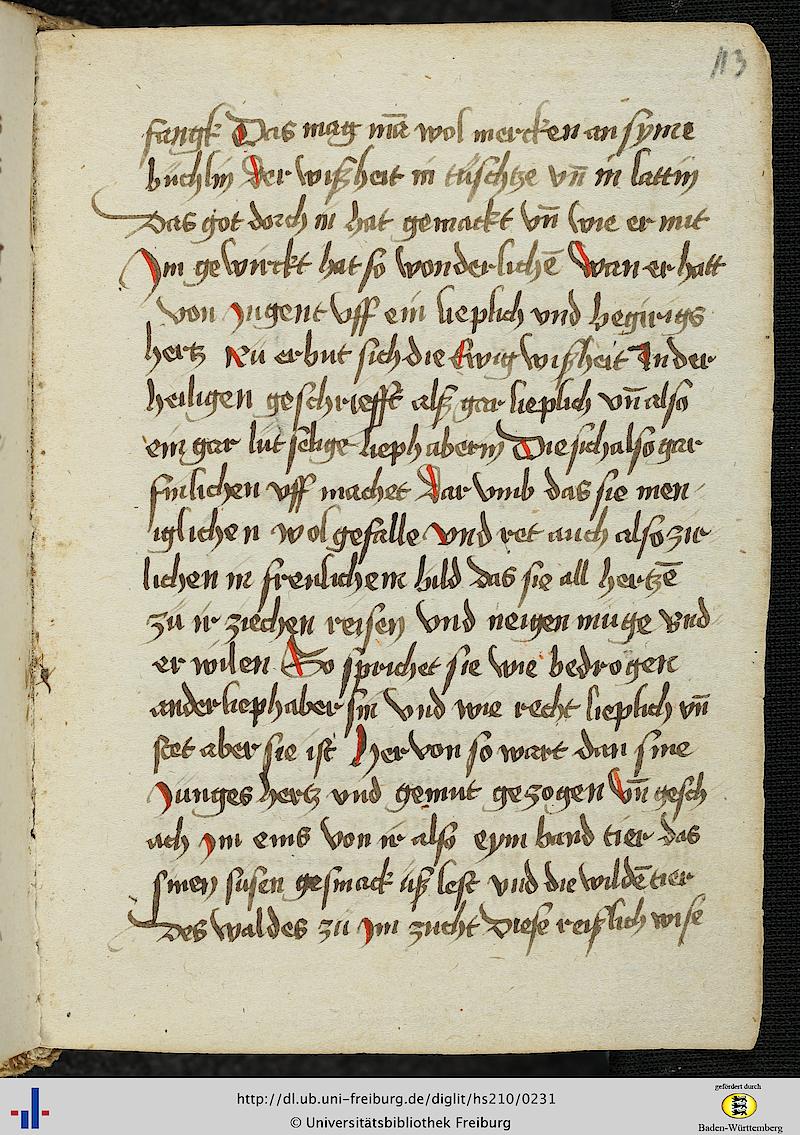 113
fangk Das mag mā wol mercken an syme
buchlin der wißheit in tüschtze vn̄ in lattin
Das got dorch in hat gemackt vn̄ wie er mit
Im gewirckt hat so wonderlichē wan er hatt
von Jugent vff ein lieplich vnd begirigs
hertz Nu erbut sich die Ewig wißheit In der
heiligen geschriefft alß gar lieplich vn̄ also
ein gar lut selige liephaberin Die sich also gar
finlichen vff machet dar vmb das sie men-
iglichen wol gefalle vnd ret auch also zir-
lichen in frenlichem bild das sie all hertzē
zu ir ziechen reisen vnd neigen muge vnd
er wilen So sprichet sie wie bedrogen
ander liephaber sin vnd wie recht lieplich vn̄
stet aber sie ist her von so wart dan sine
Junges hertz vnd gemut gezogen vn̄ gesch
ach Im eins von ir also eym band tier das
sinen susen gesmack uß lest vnd die wildē tier
des waldes zü Im zucht Diese reißlich wise
http://dl.ub.uni-freiburg.de/diglit/hs210/0231
© Universitätsbibliothek Freiburg
gefördert durch
Baden-Württemberg